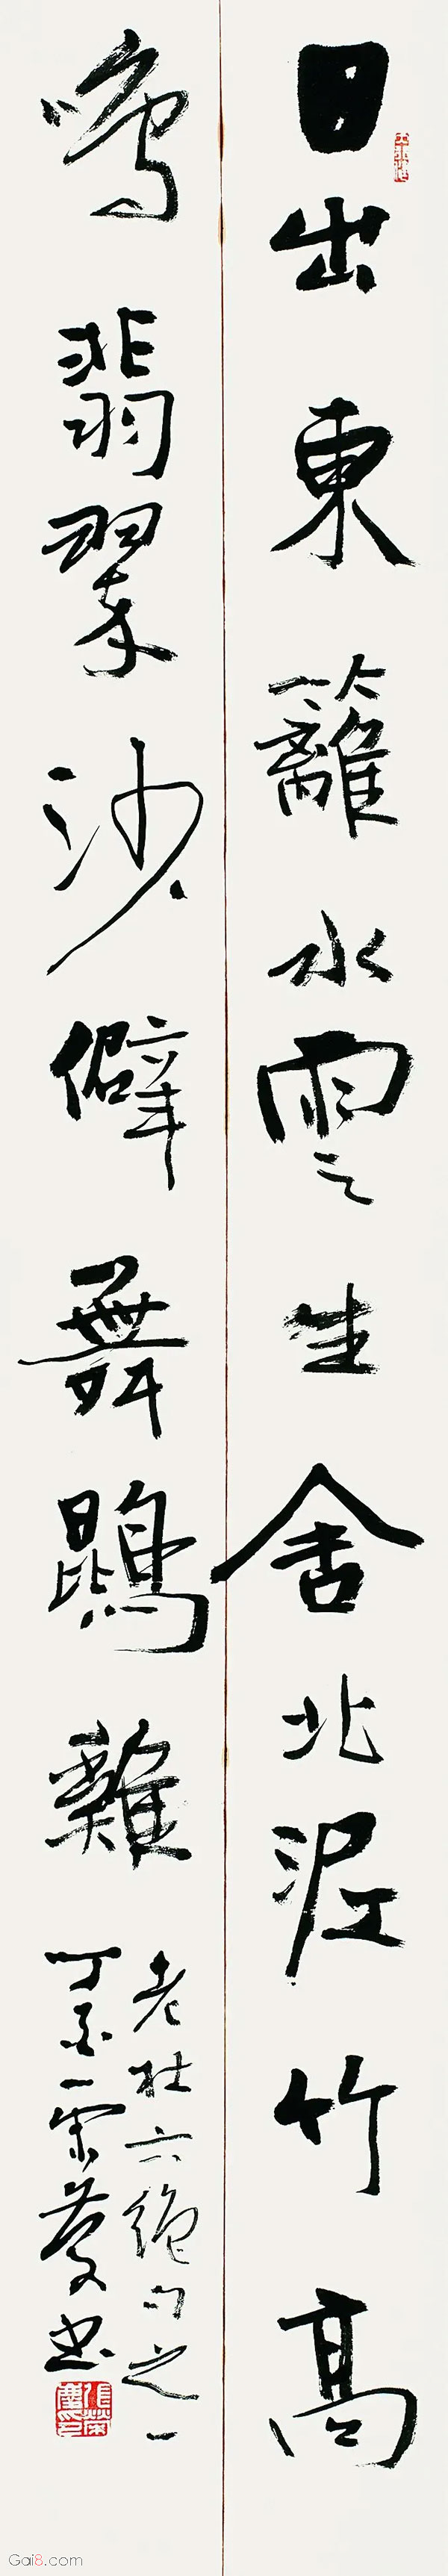 日出東籬水雲生舍北泥竹高
鳴翡翠沙僻舞鵾雞
老杜六絕句之一
丁亥榮慶书
張榮慶印
Gai8.com